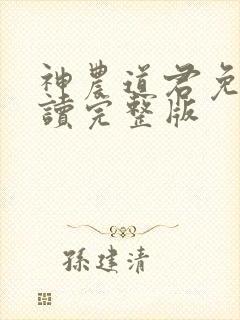 神農道君免
讀完整版
孫建清